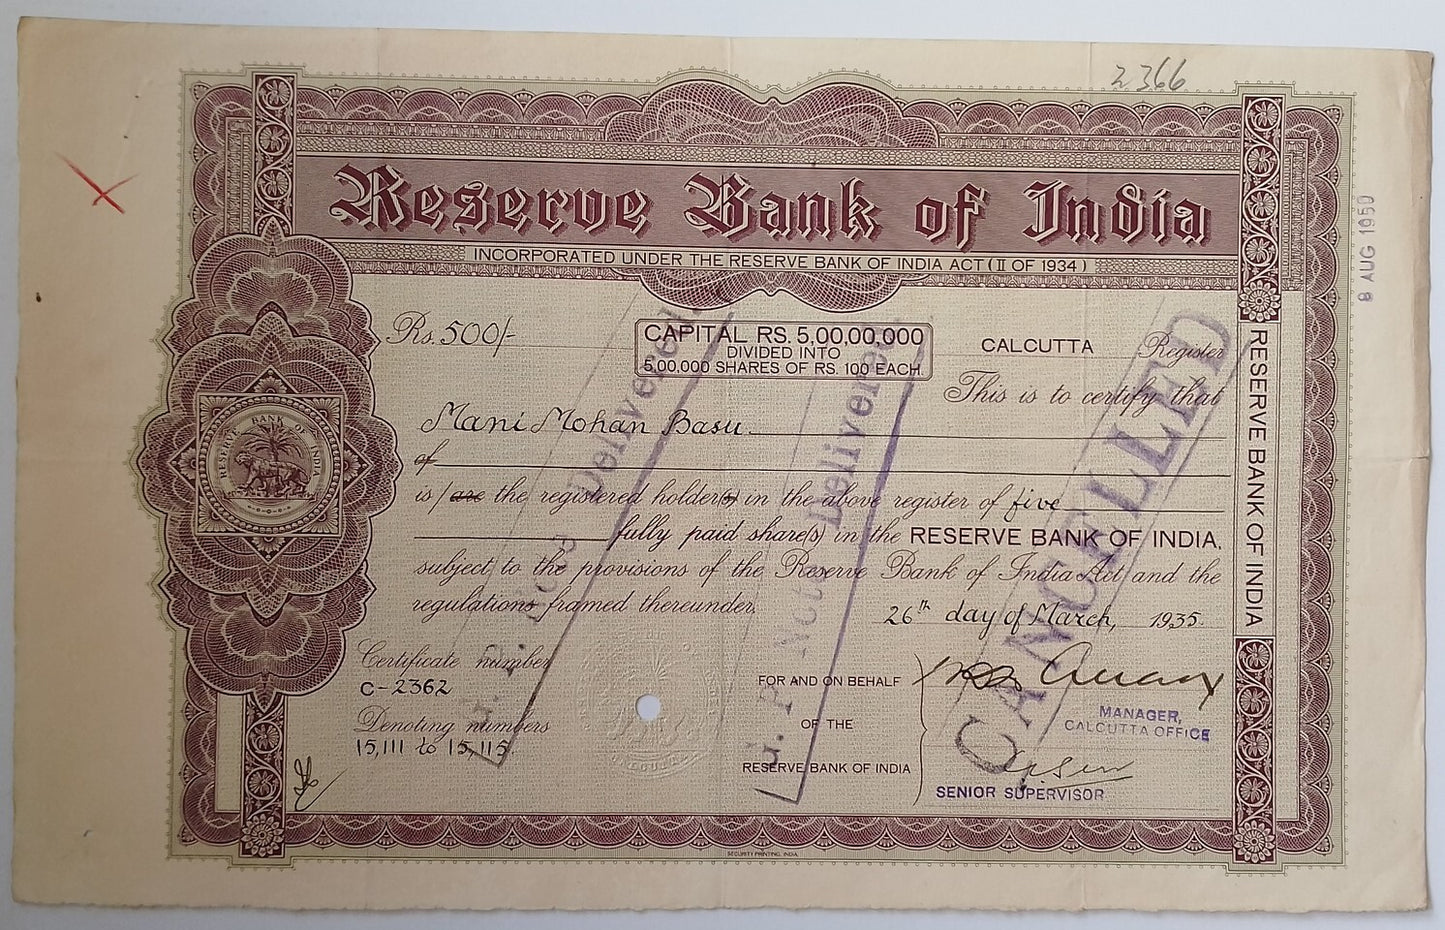 2366
Reserve Bank of India
INCORPORATED UNDER THE RESERVE BANK OF INDIA ACT (II OF 1934)
8 AUG 1950
Rs. 500/-
CAPITAL RS. 5,00,00,000
DIVIDED INTO
5,00,000 SHARES OF RS. 100 EACH
CALCUTTA Register
This is to certify that
Mani Mohan Basu
of
is / are the registered holder(s) in the above register of five
fully paid share(s) in the RESERVE BANK OF INDIA,
subject to the provisions of the Reserve Bank of India Act and the
regulations framed thereunder.
26th day of March, 1935
Certificate number
C-2362
Denoting numbers
15,111 to 15,115
FOR AND ON BEHALF
OF THE
RESERVE BANK OF INDIA
MANAGER,
CALCUTTA OFFICE
SENIOR SUPERVISOR
CANCELLED
G. P. Notes Delivered
G. P. Notes Delivered
RESERVE BANK OF INDIA
RESERVE BANK OF INDIA
SECURITY PRINTING, INDIA.